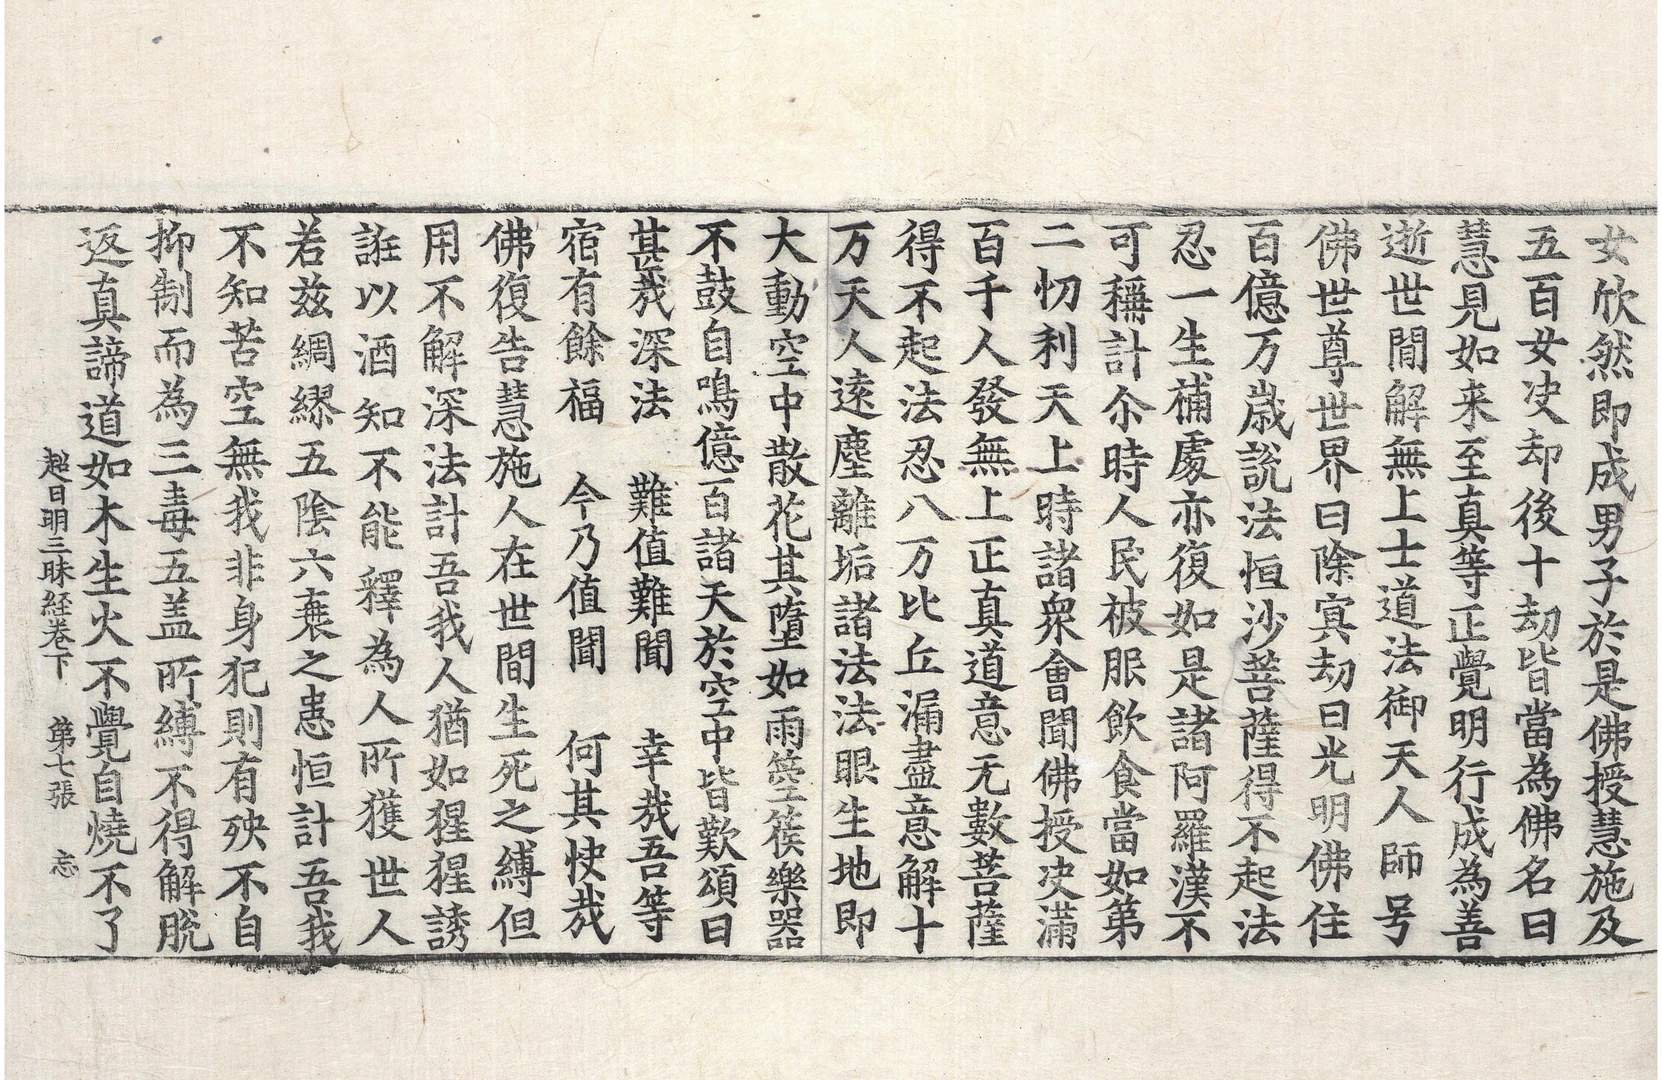 女欣然即成男子於是佛授慧施及
五百女决却後十劫皆當為佛名曰
慧見如来至真等正覺明行成為善
逝世間解無上士道法御天人師号
佛世尊世界曰除㝠劫曰光明佛住
百億万歲說法恒沙菩薩得不起法
忍一生補處亦復如是諸阿羅漢不
可稱計尒時人民被服飲食當如第
二忉利天上時諸衆會聞佛授决滿
百千人發無上正真道意无數菩薩
得不起法忍八万比丘漏盡意解十
万天人遠塵離垢諸法法眼生地即
大動空中散花其墮如雨箜篌樂器
不鼓自鳴億百諸天於空中皆歎頌曰
甚㢤深法　難值難聞　幸㢤吾等
宿有餘福　今乃值聞　何其快㢤
佛復告慧施人在世間生死之縛但
用不解深法計吾我人猶如猩猩誘
誑以酒知不能釋為人所獲世人
若兹綢繆五陰六衰之患恒計吾我
不知苦空無我非身犯則有殃不自
抑制而為三毒五盖所縛不得解脫
返真諦道如木生火不覺自燒不了
超日明三昧経卷下　第七張　忘